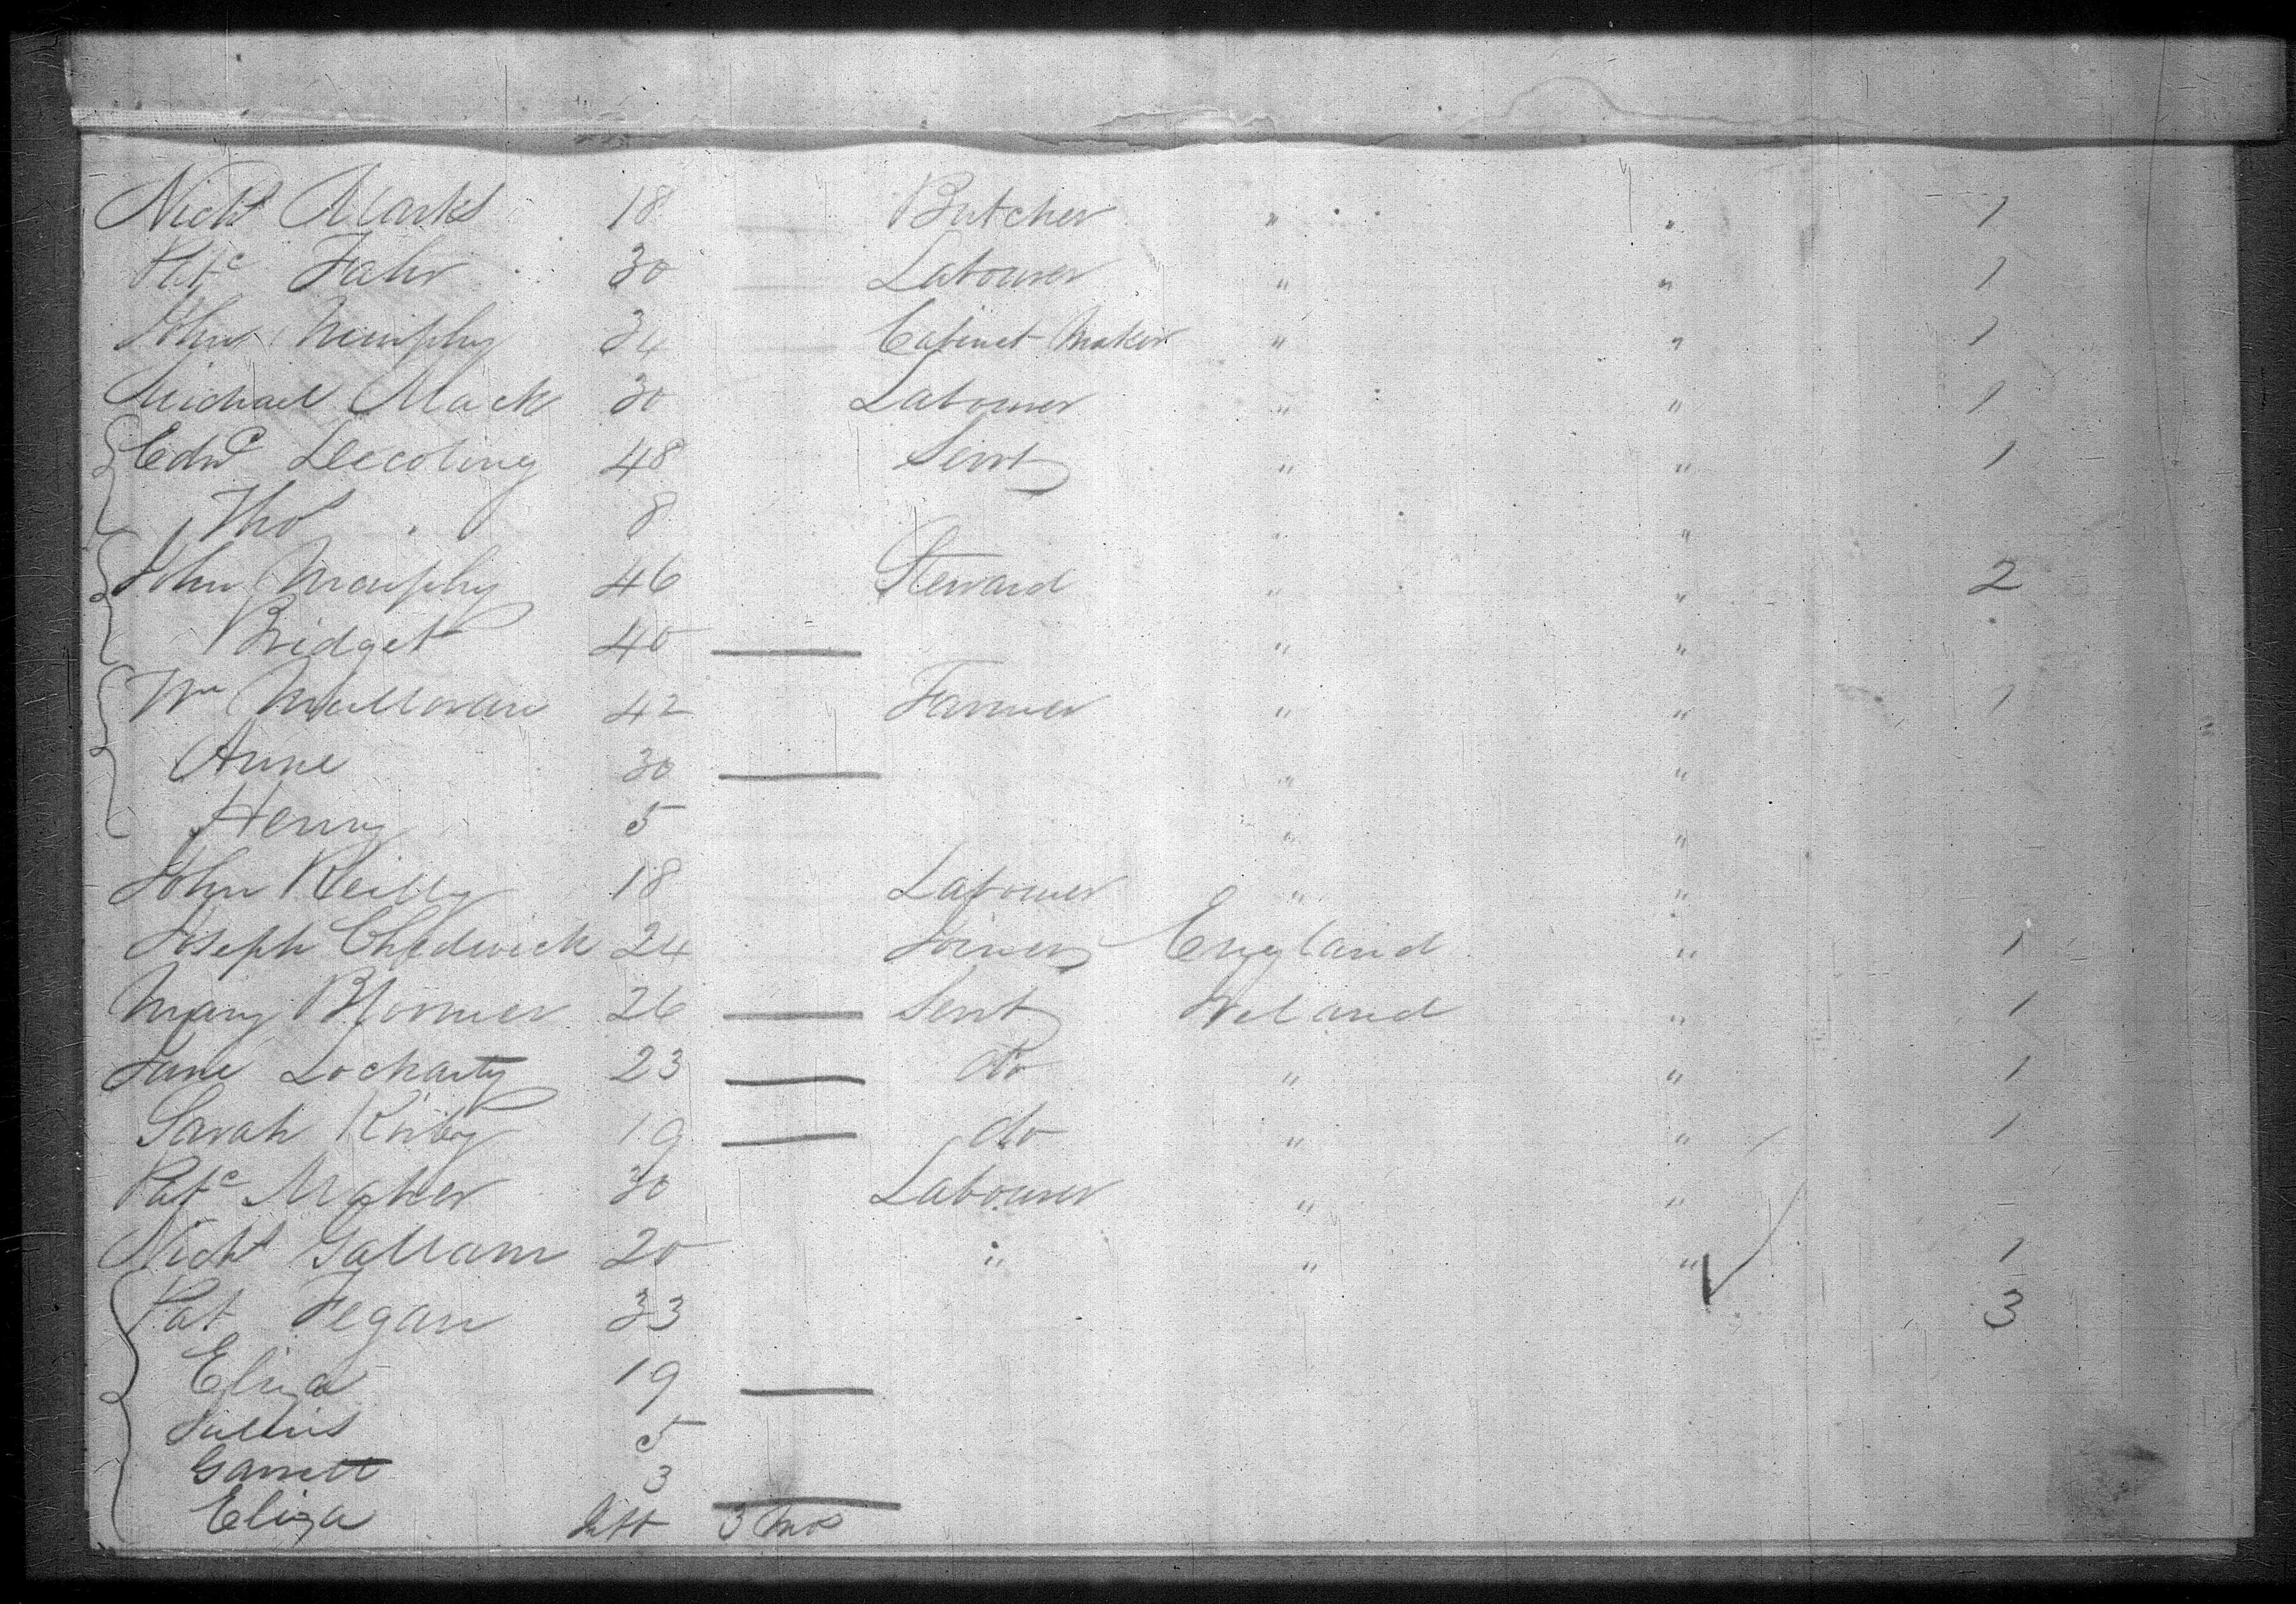 Nichs Marks 18 — Butcher " " 1
Patc Fahr 30 — Labourer " " 1
John Murphy 34 — Cabinet Maker " " 1
Michael Mack 30 Labourer " " 1
Edwd 48 Servt " " 1
Thos " 8 " "
John Murphy 46 Steward " " 2
Bridget 40 — " "
Wm Mulloran 42 Farmer " " 1
Anne 30 — " "
Henry 5 " "
John Reilly 18 Labourer " "
Joseph Chedwick 24 Joiner England " 1
Mary Bloomer 26 — Servt Ireland " 1
Jane Docharty 23 — do " " 1
Sarah Kirby 19 — do " " 1
Patc Maher 30 Labourer " "
Nichs Gallam 20 " " " 1
Pat Fegan 33 3
Eliza 19 —
5
Garrett 3
Eliza Inft 3 mos